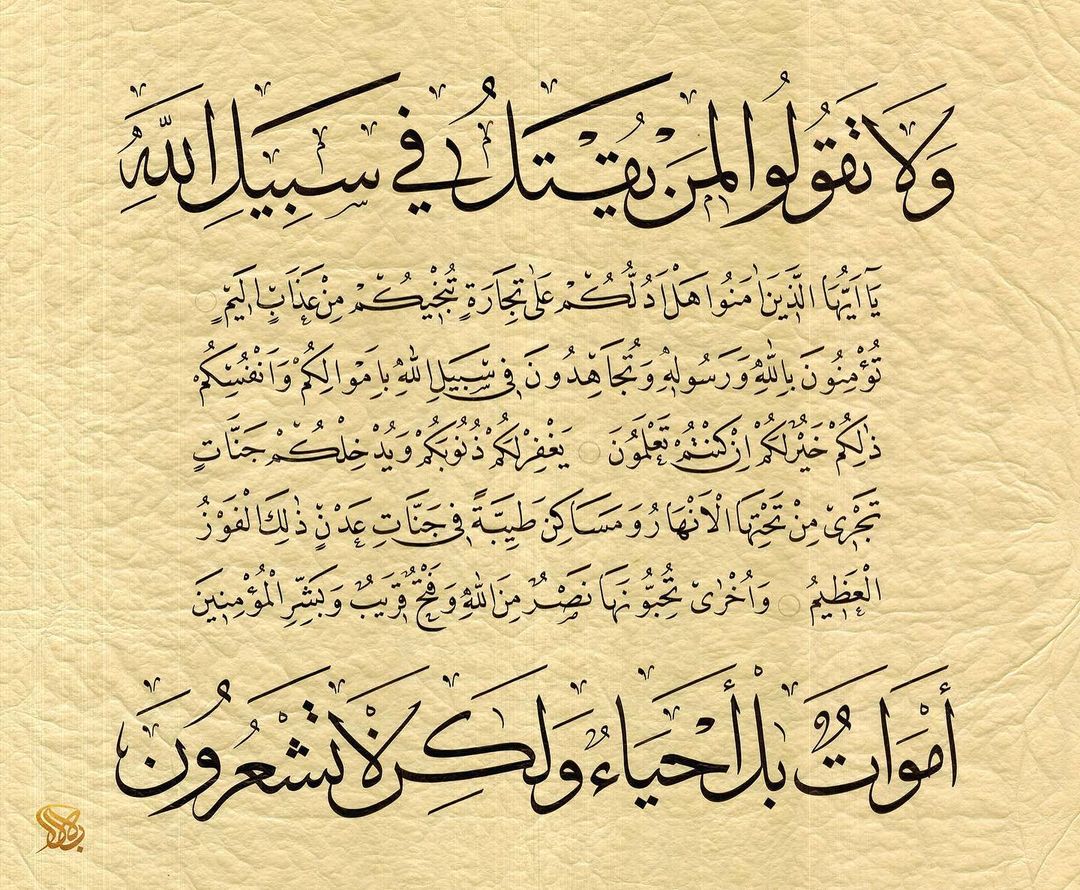 وَلَا تَقُولُوا لِمَنْ يُقْتَلُ فِي سَبِيلِ اللَّهِ
يَآ اَيُّهَا الَّذِينَ اٰمَنُوا هَلْ اَدُلُّكُمْ عَلٰى تِجَارَةٍ تُنْجِيكُمْ مِنْ عَذَابٍ اَلِيمٍ
تُؤْمِنُونَ بِاللّٰهِ وَرَسُولِهِ وَتُجَاهِدُونَ فِى سَبِيلِ اللّٰهِ بِاَمْوَالِكُمْ وَاَنْفُسِكُمْ
ذٰلِكُمْ خَيْرٌ لَكُمْ اِنْ كُنْتُمْ تَعْلَمُونَ ۝ يَغْفِرْ لَكُمْ ذُنُوبَكُمْ وَيُدْخِلْكُمْ جَنَّاتٍ
تَجْرِى مِنْ تَحْتِهَا الْاَنْهَارُ وَمَسَاكِنَ طَيِّبَةً فِى جَنَّاتِ عَدْنٍ ذٰلِكَ الْفَوْزُ
الْعَظِيمُ ۝ وَاُخْرٰى تُحِبُّونَهَا نَصْرٌ مِنَ اللّٰهِ وَفَتْحٌ قَرِيبٌ وَبَشِّرِ الْمُؤْمِنِينَ
أَمْوَاتٌ بَلْ أَحْيَاءٌ وَلَكِنْ لَا تَشْعُرُونَ